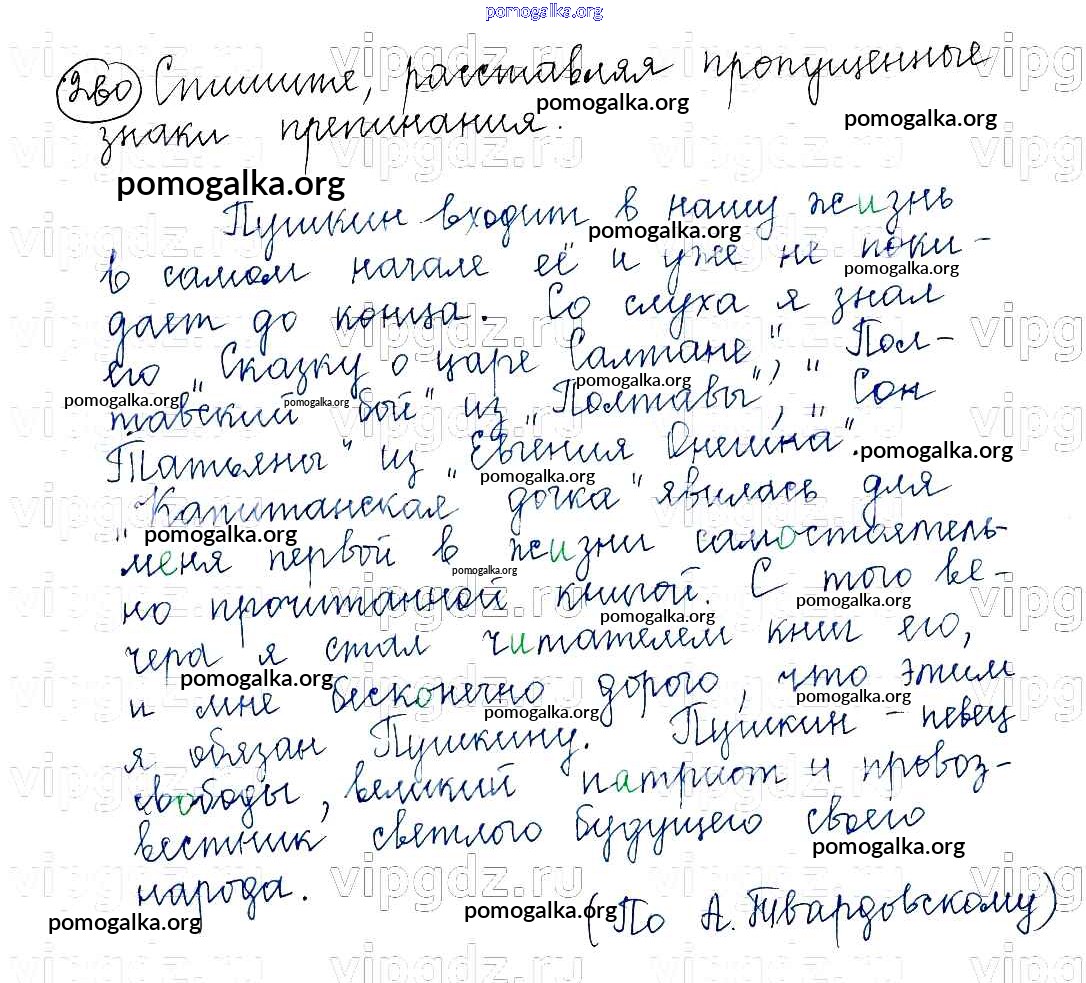 pomogalka.org
260 Спишите, расставляя пропущенные
знаки препинания.
Пушкин входит в нашу жизнь
в самом начале её и уже не поки-
дает до конца. Со слуха я знал
его „Сказку о царе Салтане", „Пол-
тавский бой" из „Полтавы", „Сон
Татьяны" из „Евгения Онегина".
„Капитанская дочка" явилась для
меня первой в жизни самостоятель-
но прочитанной книгой. С того ве-
чера я стал читателем книг его,
и мне бесконечно дорого, что этим
я обязан Пушкину. Пушкин - певец
свободы, великий патриот и провоз-
вестник светлого будущего своего
народа.
(По А. Твардовскому)